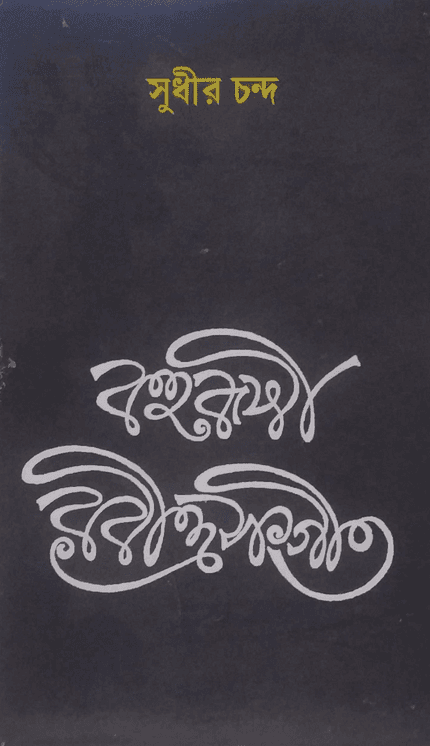 সুধীর চন্দ
বহুরূপী
রবীন্দ্রসংগীত